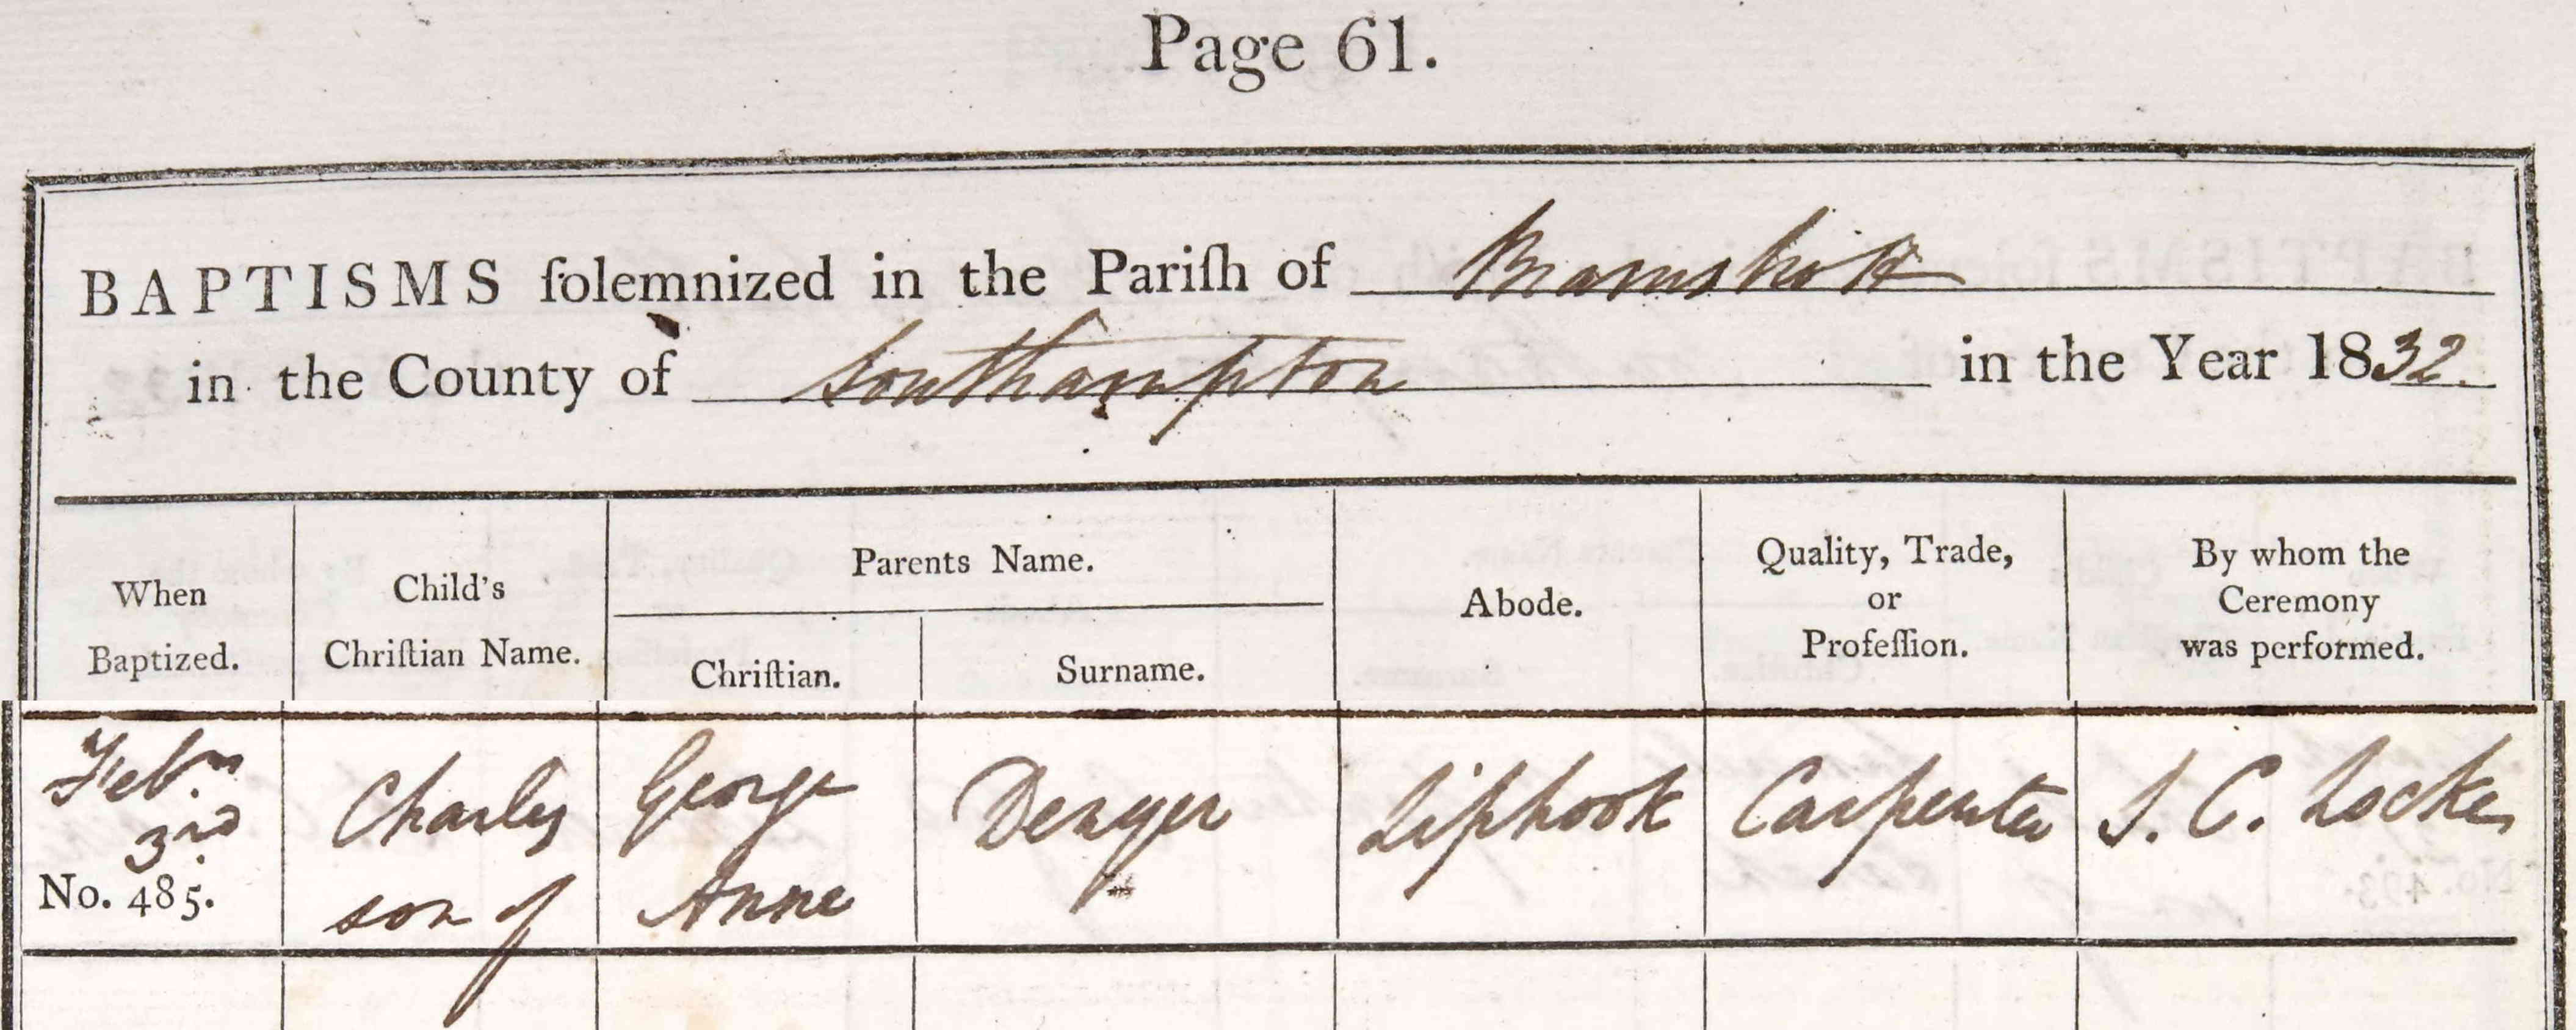 Page 61.
BAPTISMS ſolemnized in the Pariſh of Bramshott
in the County of Southampton in the Year 1832.
When
Baptized.
Child's
Chriſtian Name.
Parents Name.
Chriſtian.
Surname.
Abode.
Quality, Trade,
or
Profeſſion.
By whom the
Ceremony
was performed.
Feb.ry
3rd
No. 485.
Charles
son of
George
Anne
Denyer
Liphook
Carpenter
J. C. Locke